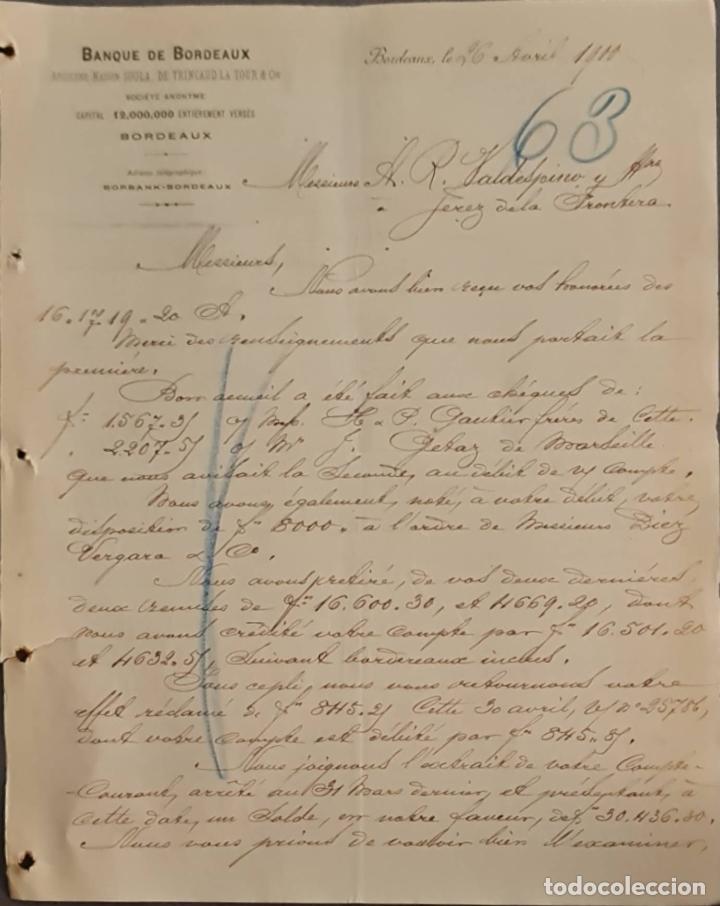 BANQUE DE BORDEAUX
ANCIENNE MAISON SOULA, DE TRINCAUD LA TOUR & Cie
SOCIÉTÉ ANONYME
CAPITAL 12,000,000 ENTIÈREMENT VERSÉS
BORDEAUX
Adresse télégraphique:
BORBANK-BORDEAUX
Bordeaux, le 26 Avril 1900
63
Messieurs A. R. Valdespino y Hno
a Jerez de la Frontera.
Messieurs,
Nous avons bien reçu vos honorées des
16. 17. 19 - 20 Ct.
Merci des renseignements que nous portait la
première.
Bon accueil a été fait aux chèques de :
f. 1.567.35 o/ MM. H & P. Gautier frères de Cette
. 2207.55 o/ Mr J. Getaz de Marseille
que nous avisait la seconde, au débit de v/ compte.
Nous avons, également, noté, à votre débit, votre
disposition de fcs 8000. - à l'ordre de Messieurs Diez
Vergara & Co.
Nous avons retiré, de vos deux dernières,
deux remises de fcs 16.600.30, et 4669.20, dont
nous avons crédité votre compte par fcs 16.501.20
et 4632.55, suivant bordereaux inclus.
Sous ce pli, nous vous retournons votre
effet réclamé de fcs 845.25 Cette 30 avril, v/ no 25786,
dont votre compte est débité par fcs 845.85.
Nous joignons l'extrait de votre Compte-
Courant, arrêté au 31 Mars dernier, et présentant, à
cette date, un solde, en notre faveur, de fcs 30.436.80.
Nous vous prions de vouloir bien l'examiner,
todocoleccion
todocoleccion.net